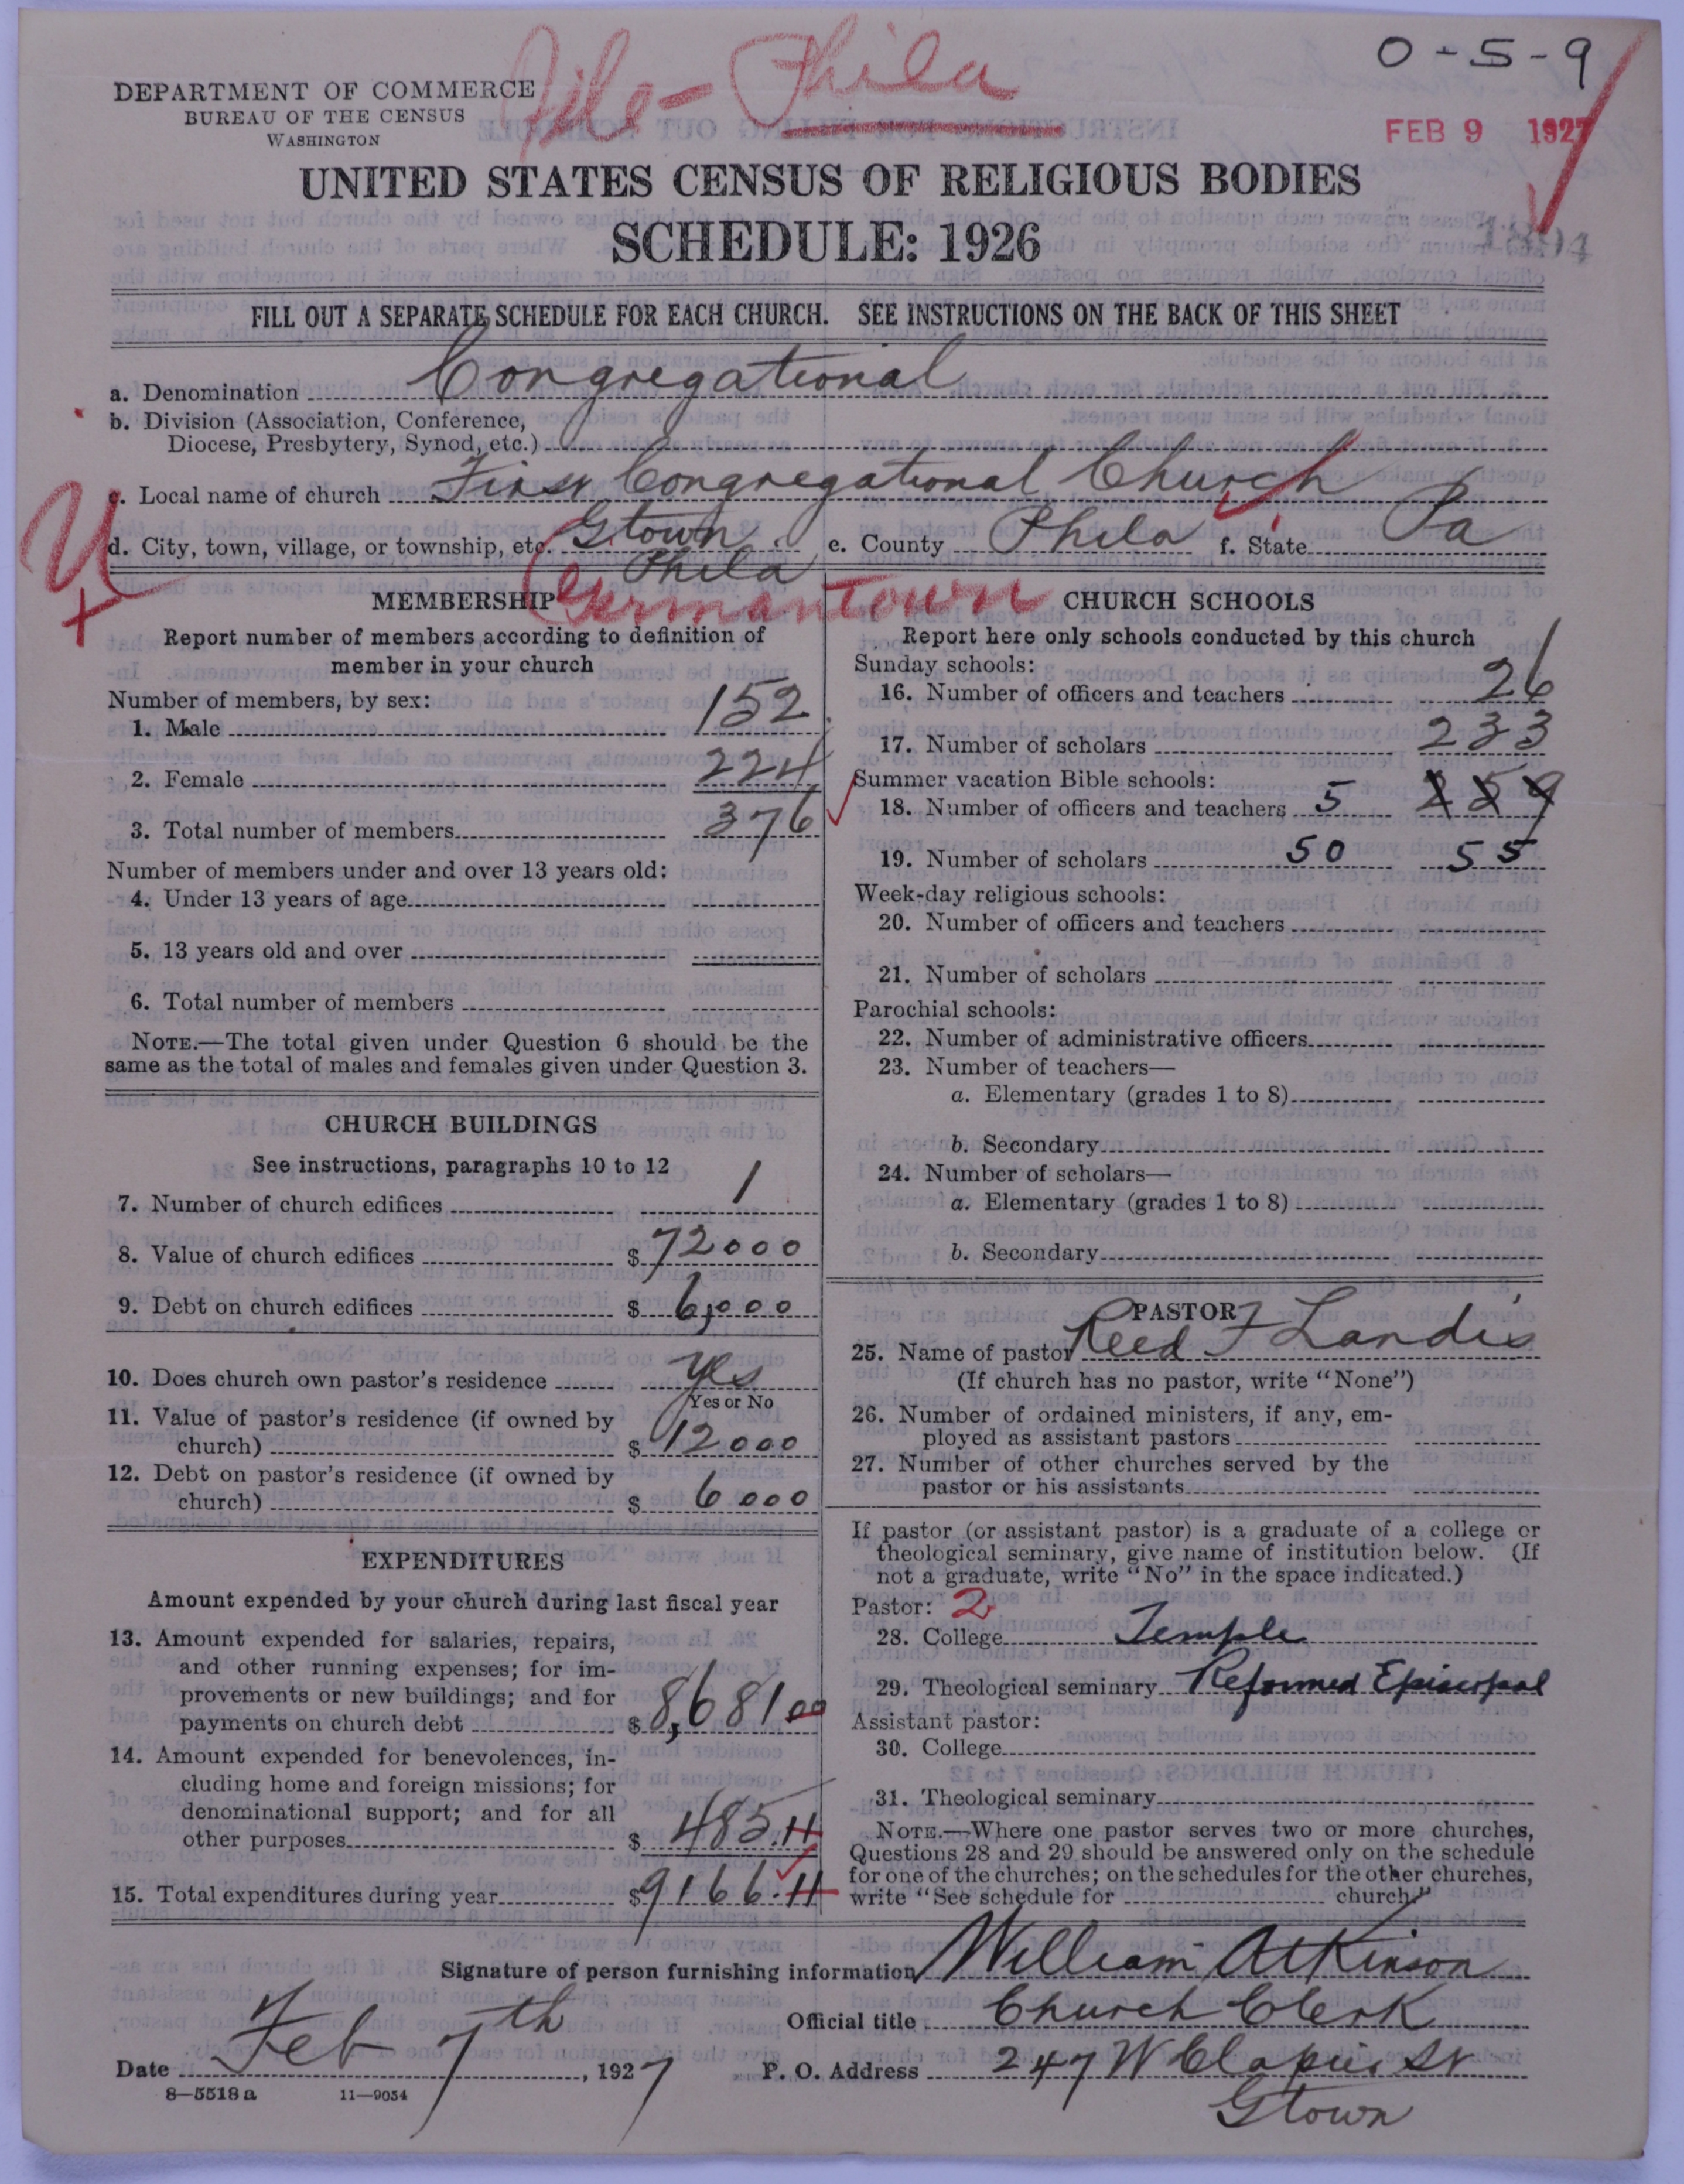 File - Phila
0-5-9
DEPARTMENT OF COMMERCE
BUREAU OF THE CENSUS
WASHINGTON
FEB 9 1927
UNITED STATES CENSUS OF RELIGIOUS BODIES
SCHEDULE: 1926
1894
FILL OUT A SEPARATE SCHEDULE FOR EACH CHURCH. SEE INSTRUCTIONS ON THE BACK OF THIS SHEET
a. Denomination Congregational
b. Division (Association, Conference,
Diocese, Presbytery, Synod, etc.)
c. Local name of church First Congregational Church
d. City, town, village, or township, etc. Gtown e. County Phila f. State Pa
Phila
Germantown
MEMBERSHIP
Report number of members according to definition of
member in your church
Number of members, by sex:
1. Male 152
2. Female 224
3. Total number of members 376
Number of members under and over 13 years old:
4. Under 13 years of age
5. 13 years old and over
6. Total number of members
NOTE.—The total given under Question 6 should be the
same as the total of males and females given under Question 3.
CHURCH BUILDINGS
See instructions, paragraphs 10 to 12
7. Number of church edifices 1
8. Value of church edifices $ 72000
9. Debt on church edifices $ 6,000
10. Does church own pastor's residence yes
Yes or No
11. Value of pastor's residence (if owned by
church) $ 12000
12. Debt on pastor's residence (if owned by
church) $ 6000
EXPENDITURES
Amount expended by your church during last fiscal year
13. Amount expended for salaries, repairs,
and other running expenses; for im-
provements or new buildings; and for
payments on church debt $ 8,681 00
14. Amount expended for benevolences, in-
cluding home and foreign missions; for
denominational support; and for all
other purposes $ 485.11
15. Total expenditures during year $ 9166.11
CHURCH SCHOOLS
Report here only schools conducted by this church
Sunday schools:
16. Number of officers and teachers 26
17. Number of scholars 233
Summer vacation Bible schools:
18. Number of officers and teachers 5 259
19. Number of scholars 50 55
Week-day religious schools:
20. Number of officers and teachers
21. Number of scholars
Parochial schools:
22. Number of administrative officers
23. Number of teachers—
a. Elementary (grades 1 to 8)
b. Secondary
24. Number of scholars—
a. Elementary (grades 1 to 8)
b. Secondary
PASTOR
25. Name of pastor Reed F Landis
(If church has no pastor, write "None")
26. Number of ordained ministers, if any, em-
ployed as assistant pastors
27. Number of other churches served by the
pastor or his assistants
If pastor (or assistant pastor) is a graduate of a college or
theological seminary, give name of institution below. (If
not a graduate, write "No" in the space indicated.)
Pastor: 2
28. College Temple
29. Theological seminary Reformed Episcopal
Assistant pastor:
30. College
31. Theological seminary
NOTE.—Where one pastor serves two or more churches,
Questions 28 and 29 should be answered only on the schedule
for one of the churches; on the schedules for the other churches,
write "See schedule for church."
Signature of person furnishing information William Atkinson
Official title Church Clerk
Date Feb 7th, 1927 P. O. Address 247 W Clapier St
Gtown
8-5518 a 11-9054